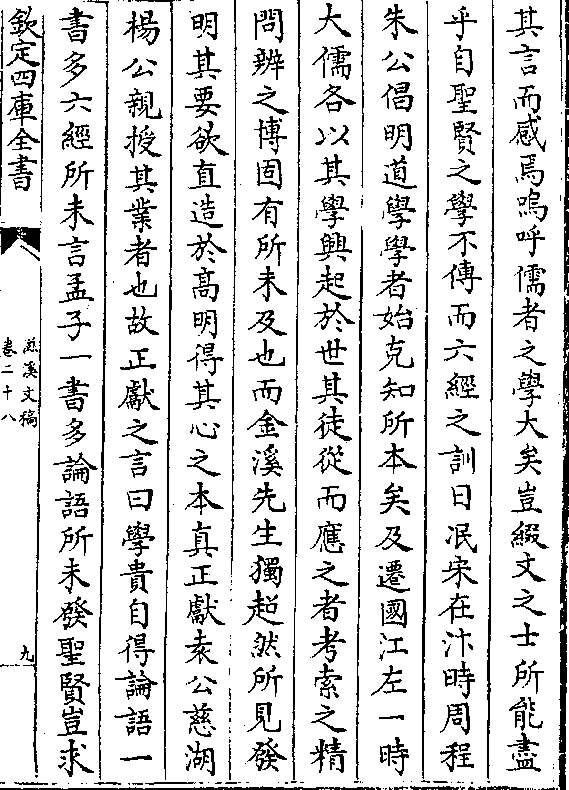 其言而感焉嗚呼儒者之學大矣豈綴文之士所能盡
乎自聖賢之學不傳而六經之訓日泯宋在汴時周程
朱公倡明道學學者始克知所本矣及遷國江左一時
大儒各以其學興起於世其徒從而應之者考索之精
問辨之博固有所未及也而金溪先生獨超然所見發
明其要欲直造於髙明得其心之本真正獻袁公慈湖
楊公親授其業者也故正獻之言曰學貴自得論語一
書多六經所未言孟子一書多論語所未發聖賢豈求
欽定四庫全書
溪文稿
卷二十八
九